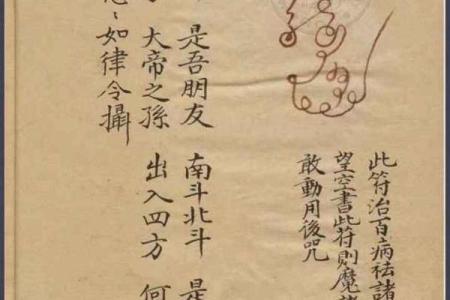 此符治百病祛諸
望空書此符則魔
敢動用後咒
是吾朋友 南斗北斗 是
大帝之孫 出入四方 何
〻如律令攝